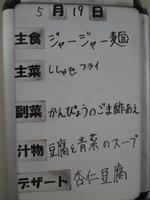 5月19日
主食 ジャージャー麺
主菜 ししゃもフライ
副菜 かんぴょうのごま酢あえ
汁物 豆腐と青菜のスープ
デザート 杏仁豆腐